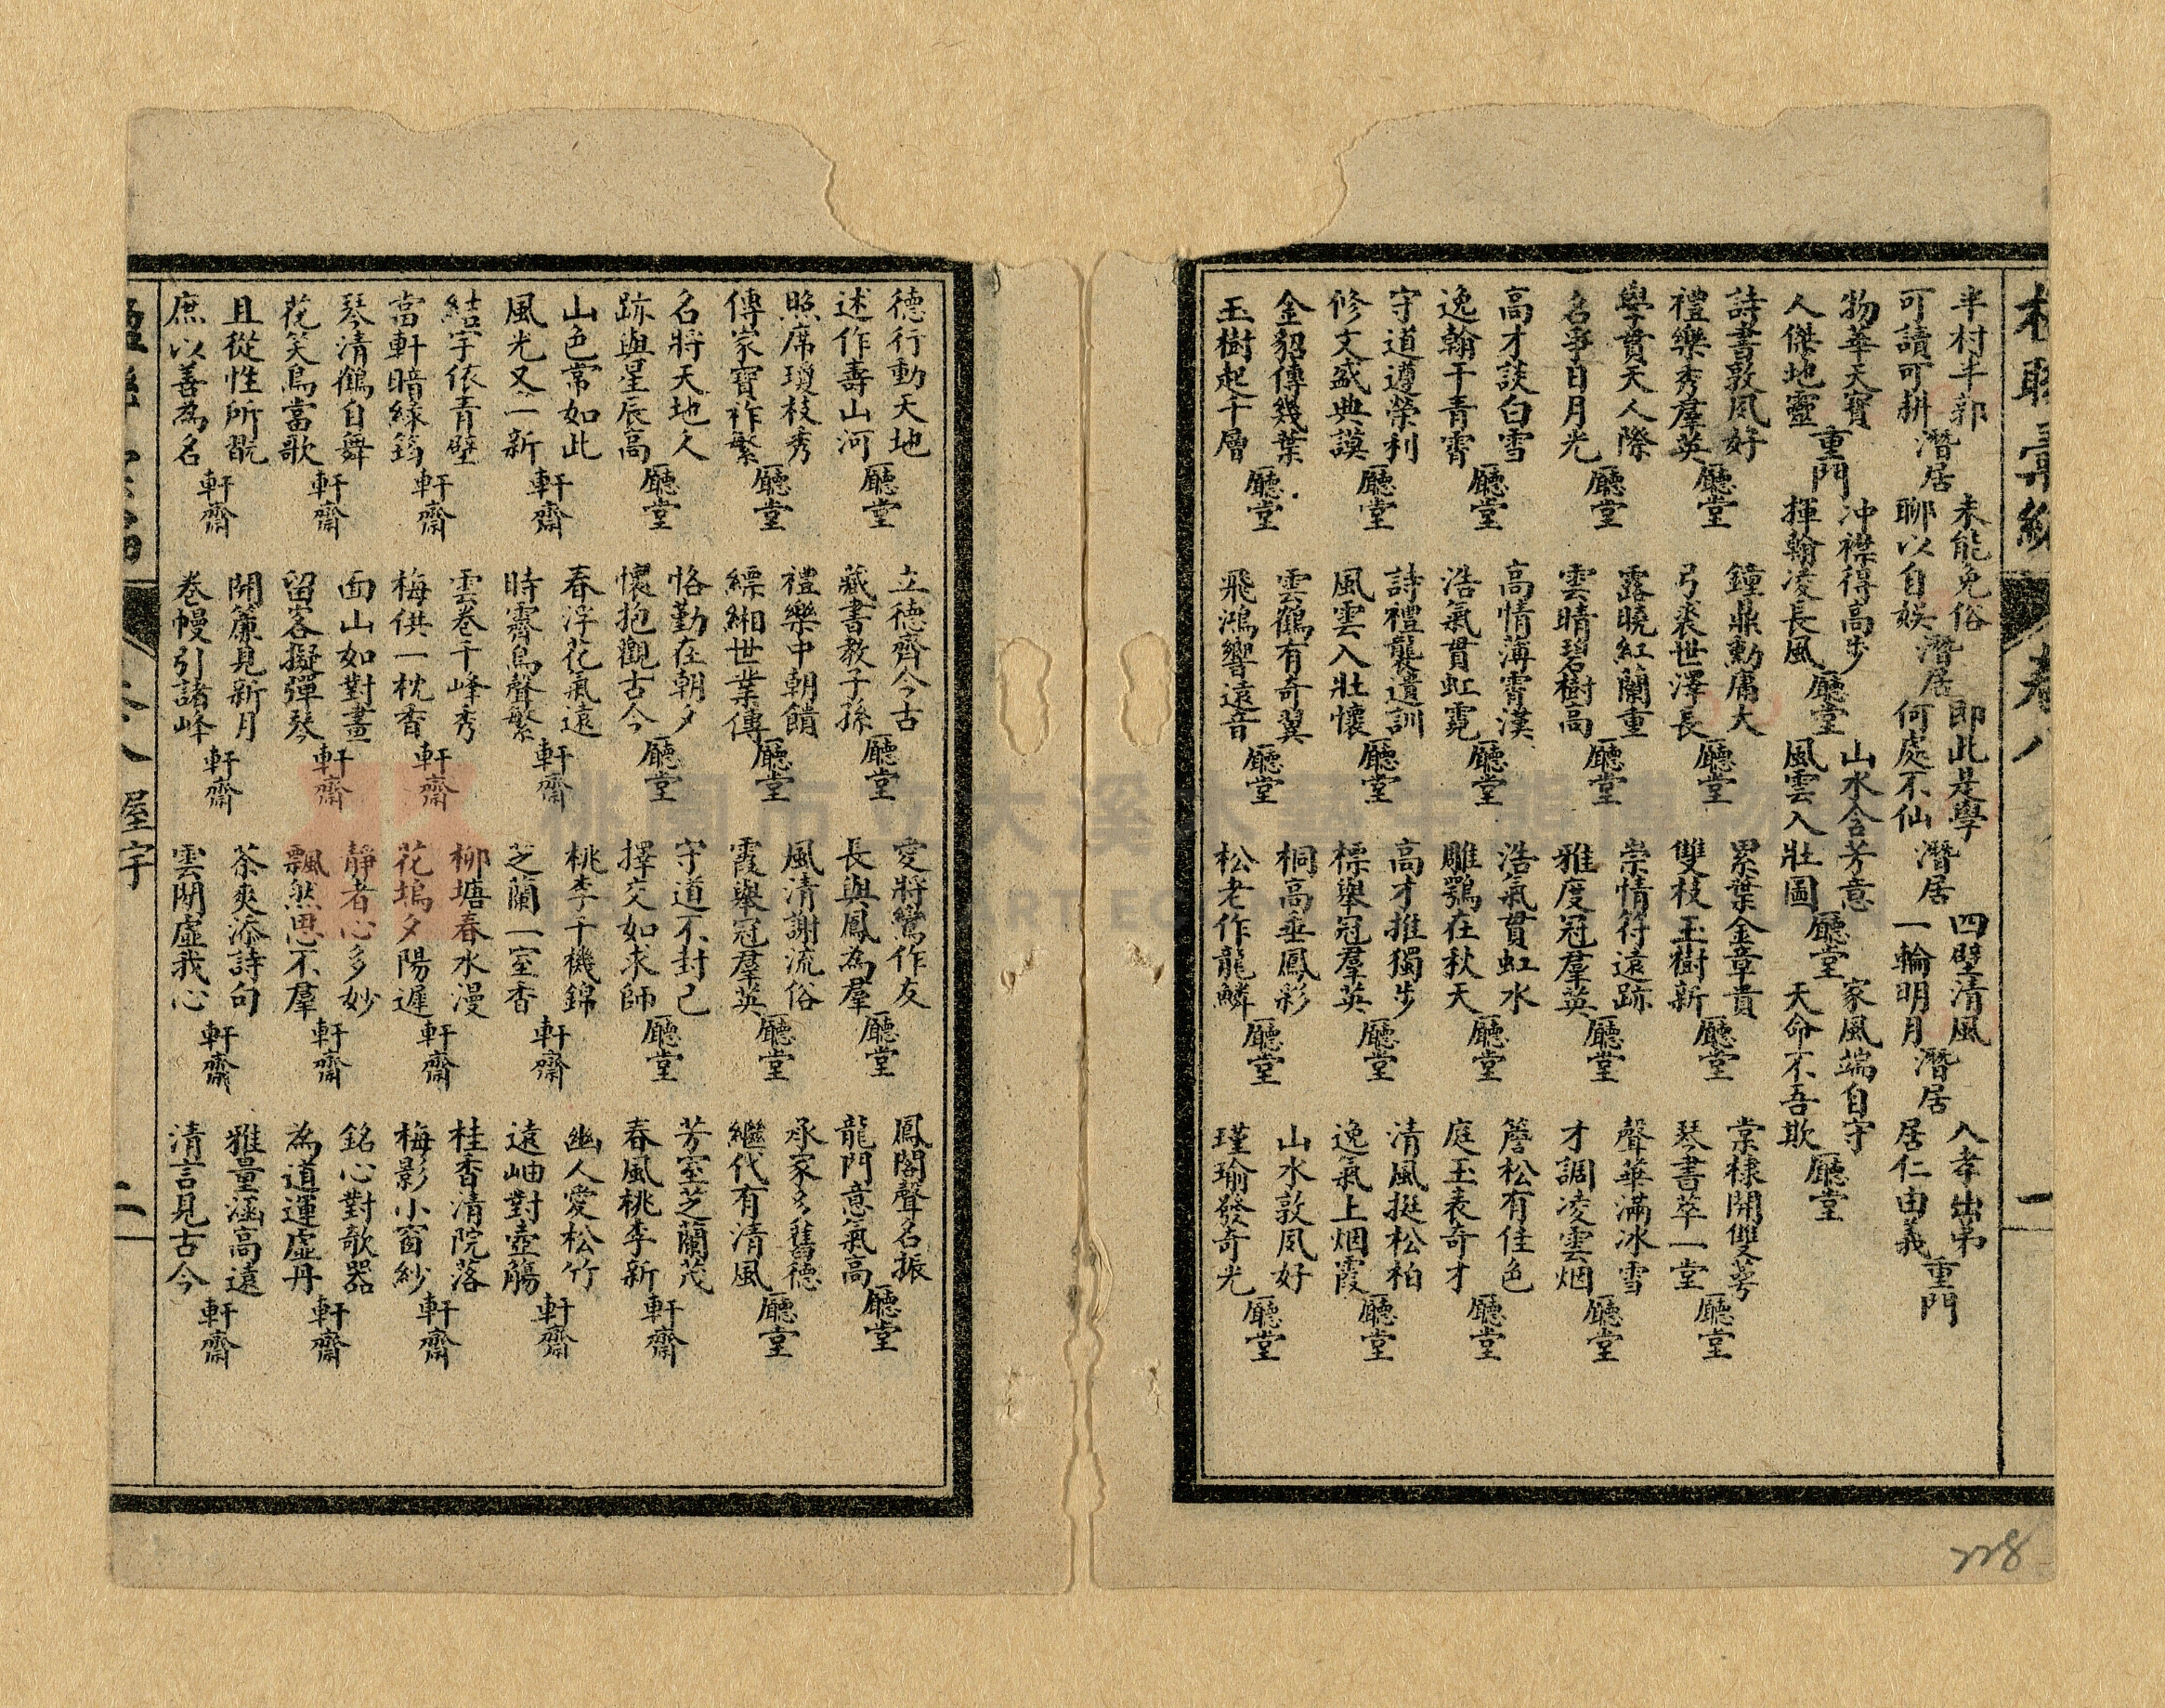 卷八
一
半村半郭
可讀可耕
潛居
未能免俗
聊以自娛
潛居
即此是學
何處不仙
潛居
四壁清風
一輪明月
潛居
入孝出弟
居仁由義
重門
物華天寶
人傑地靈
重門
冲襟得高步
揮翰凌長風
廳堂
山水含芳意
風雲入壯圖
廳堂
家風端自守
天命不吾欺
廳堂
詩書敦夙好
禮樂秀羣英
廳堂
鐘鼎勳庸大
弓裘世澤長
廳堂
累葉金章貴
雙枝玉樹新
廳堂
棠棣開雙萼
琴書萃一堂
廳堂
學貫天人際
名爭日月光
廳堂
露曉紅蘭重
雲晴碧樹高
廳堂
崇情符遠跡
雅度冠羣英
廳堂
聲華滿冰雪
才調凌雲烟
廳堂
高才談白雪
逸翰干青霄
廳堂
高情薄霄漢
浩氣貫虹霓
廳堂
浩氣貫虹水
雕鶚在秋天
廳堂
簷松有佳色
庭玉表奇才
廳堂
守道遵榮利
修文盛典謨
廳堂
詩禮襲遺訓
風雲入壯懷
廳堂
高才推獨步
標舉冠羣英
廳堂
清風挺松柏
逸氣上烟霞
廳堂
金貂傳幾葉
玉樹起千層
廳堂
雲鶴有奇翼
飛鴻響遠音
廳堂
桐高垂鳳彩
松老作龍鱗
廳堂
山水敦夙好
瑾瑜發奇光
廳堂
228
德行動天地
述作壽山河
廳堂
立德齊今古
藏書教子孫
廳堂
愛將鶯作友
長與鳳為羣
廳堂
鳳閣聲名振
龍門意氣高
廳堂
照席瓊枝秀
傳家寶祚繁
廳堂
禮樂中朝饋
縹緗世業傳
廳堂
風清謝流俗
霞舉冠羣英
廳堂
承家多舊德
繼代有清風
廳堂
名將天地久
跡與星辰高
廳堂
恪勤在朝夕
懷抱觀古今
廳堂
守道不封己
擇交如求師
廳堂
芳室芝蘭茂
春風桃李新
軒齋
山色常如此
風光又一新
軒齋
春浮花氣遠
時霽鳥聲繁
軒齋
桃李千機錦
芝蘭一室香
軒齋
幽人愛松竹
遠岫對壺觴
軒齋
結宇依青壁
當軒暗綠筠
軒齋
雲卷千峰秀
梅供一枕香
軒齋
柳塘春水漫
花塢夕陽遲
軒齋
桂香清院落
梅影小窗紗
軒齋
琴清鶴自舞
花笑鳥當歌
軒齋
面山如對畫
留客擬彈琴
軒齋
靜者心多妙
飄然思不羣
軒齋
銘心對欹器
為道運虛丹
軒齋
且從性所翫
庶以善為名
軒齋
開簾見新月
卷幔引諸峰
軒齋
茶爽添詩句
雲閒虛我心
軒齋
雅量涵高遠
清言見古今
軒齋
屋宇
二